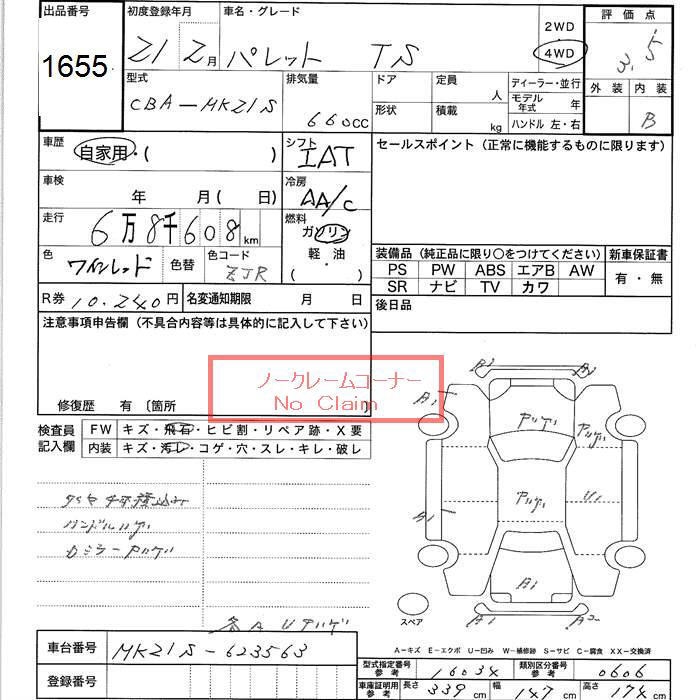 出品番号 初度登録年月 車名・グレード 2WD 評価点
1655 21 2月 パレット TS 4WD 3.5
型式 排気量 ドア 定員 人 ディーラー・並行 外装 内装
CBA-MK21S 660CC 形状 積載 kg モデル年式 年 B
ハンドル 左・右
車歴 自家用・( ) シフト IAT セールスポイント (正常に機能するものに限ります)
車検 年 月( 日) 冷房 AA/C
走行 6万8千608km 燃料 ガソリン
色 ワインレッド 色替 色コード ZJR 軽油 ( )
装備品 (純正品に限り○をつけてください) 新車保証書
PS PW ABS エアB AW 有・無
SR ナビ TV カワ
R券 10.240円 名変通知期限 月 日 後日品
注意事項申告欄 (不具合内容等は具体的に記入して下さい)
ノークレームコーナー
No Claim
修復歴 有 〔箇所
検査員記入欄 FW キズ・飛石・ヒビ割・リペア跡・X要
内装 キズ・汚レ・コゲ・穴・スレ・キレ・破レ
ハンドルハゲ
カラーアハゲ
各A Uアハゲ
B2
A1
アハゲ
アハゲ
A1
アハゲ
U1
A1
A1 A2
スペア
A-キズ E-エクボ U-凹み W-補修跡 S-サビ C-腐食 XX-交換済
車台番号 MK21S-623563
登録番号
型式指定番号 参考 16034 類別区分番号 参考 0606
車庫証明用 参考 長さ 339cm 幅 147cm 高さ 174cm